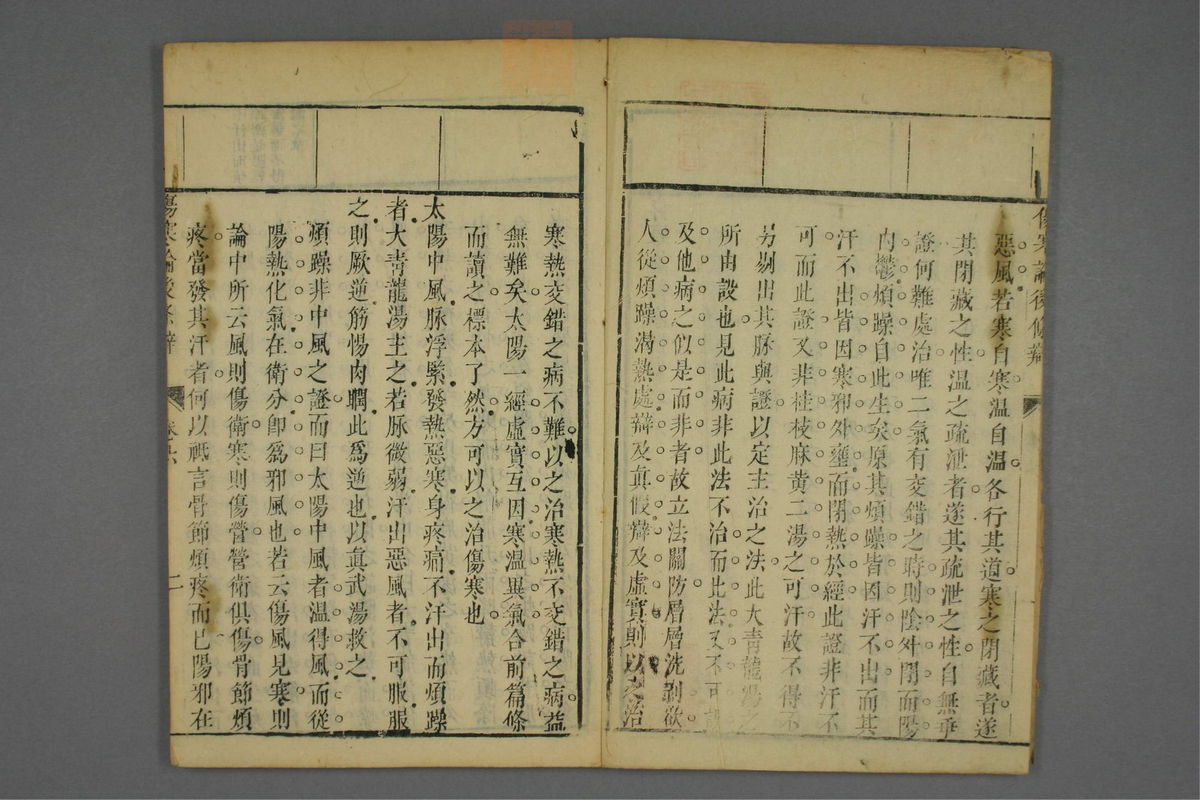 傷寒論後條辯
惡風若寒自寒温自温各行其道寒之閉藏者遂
其閉藏之性温之疏泄者遂其疏泄之性自無乖
證何難處治唯二氣有変錯之時則陰外閉而陽
内鬱煩躁自此生矣原其煩躁皆因汗不出而其
汗不出皆因寒邪外壅而閉熱於經此證非汗不
可而此證又非桂枝麻黄二湯之可汗故不得不
另剔出其脉與證以定主治之法此大青龍湯之
所由設也見此病非此法不治而此法又不可
及他病之似是而非者故立法關防層層洗剥欲
人從煩躁渴熱處辯及真假辯及虛實則以之治
寒熱変錯之病不難以之治寒熱不変錯之病益
無難矣太陽一經虛實互因寒温異氣合前篇條
而讀之標本了然方可以之治傷寒也
太陽中風脉浮緊發熱惡寒身疼痛不汗出而煩躁
者大青龍湯主之若脉微弱汗出惡風者不可服服
之則厥逆筋惕肉瞤此爲逆也以眞武湯救之
煩躁非中風之證而曰太陽中風者温得風而從
陽熱化氣在衛分卽爲邪風也若云傷風見寒則
論中所云風則傷衛寒則傷營營衛俱傷骨節煩
疼當發其汗者何以祗言骨節煩疼而已陽邪在
傷寒論後條辯
卷之六
二